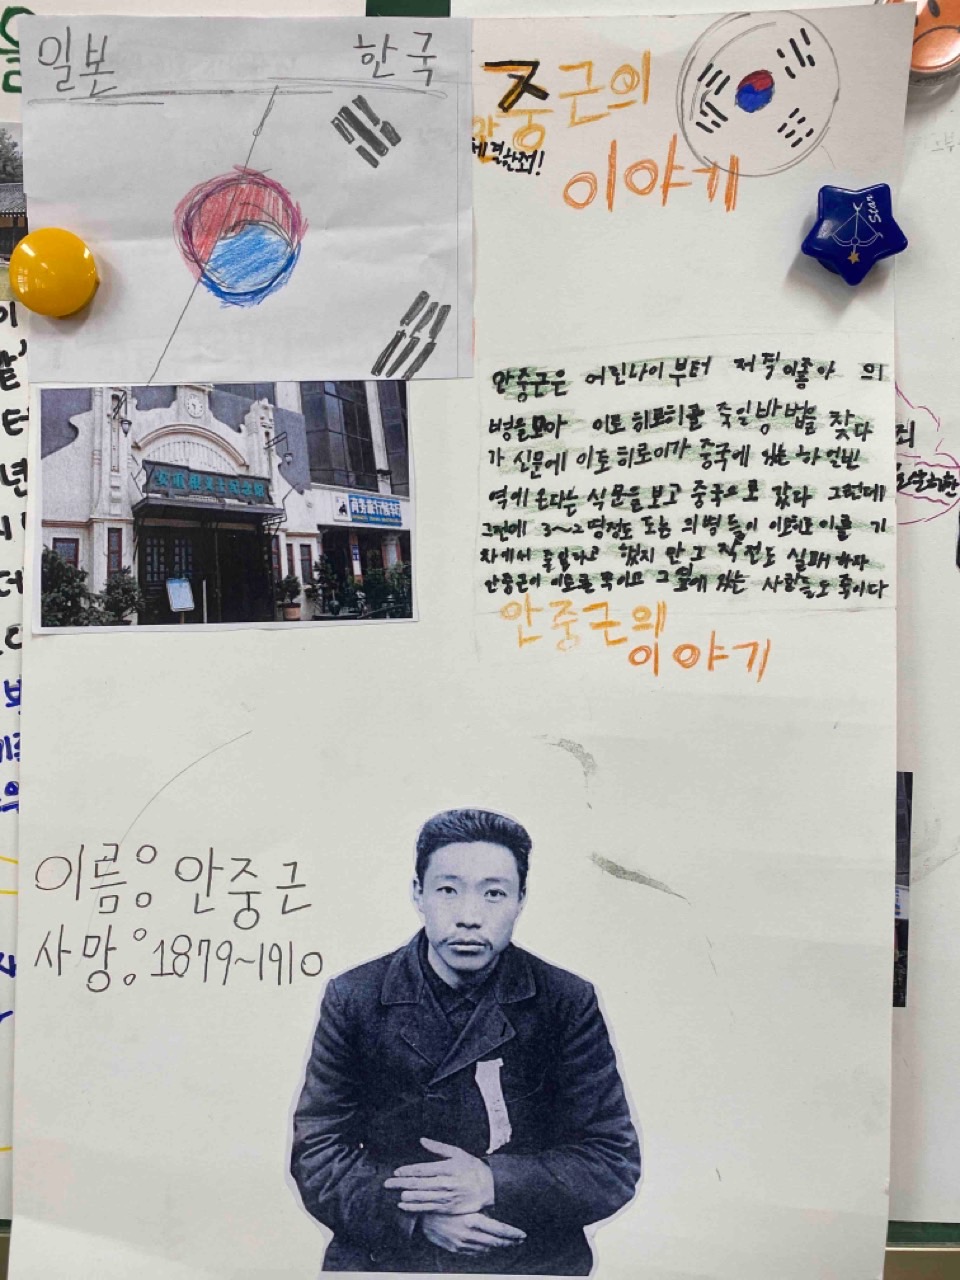 일본 한국
중근의
이야기
안중근은 어린나이부터 저격이좋아 의
병을모아 이토 히로히를 죽일방법을 찾다
가 신문에 이토 히로이가 중국에 있는 하얼빈
역에 온다는 식문을 보고 중국으로 갔다 그런데
그런데 3~2명정도 또는 의병들이 이토를 기
차에서 죽일라고 했지만 그 작전도 실패하자
안중근이 이토를 죽이고 그 옆에 있는 사람들도 죽이다
안중근의
이야기
이름: 안중근
사망: 1879~1910
Star